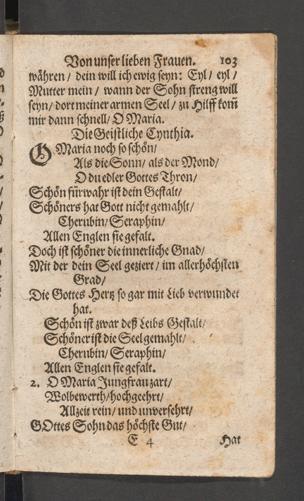 Von unser lieben Frauen. 103
währen / dein will ich ewig seyn: Eyl / eyl /
Mutter mein / wann der Sohn streng will
seyn / dort meiner armen Seel / zu Hilff kom̃
mir dann schnell / O Maria.
Die Geistliche Cynthia.
O Maria noch so schön /
Als die Sonn / als der Mond /
O du edler Gottes Thron /
Schön fürwahr ist dein Gestalt /
Schöners hat Gott nicht gemahlt /
Cherubin / Seraphin /
Allen Englen sie gefalt.
Doch ist schöner die innerliche Gnad /
Mit der dein Seel geziert / im allerhöchsten
Grad /
Die Gottes Hertz so gar mit Lieb verwundet
hat.
Schön ist zwar deß Leibs Gestalt /
Schöner ist die Seel gemahlt /
Cherubin / Seraphin /
Allen Englen sie gefalt.
2. O Maria Jungfrau zart /
Wolbewerth / hochgeehrt /
Allzeit rein / und unversehrt /
GOttes Sohn das höchste Gut /
E 4 Hat